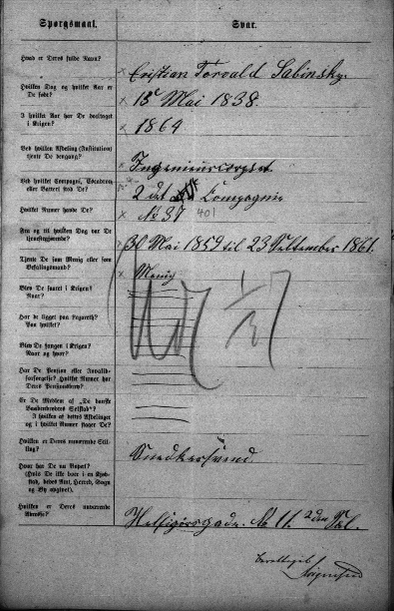 Spørgsmaal. Svar.
Hvad er Deres fulde Navn?
Cristian Torvald Sabinsky.
Hvilken Dag og hvilket Aar er
De født?
15 Mai 1838.
I hvilket Aar har De deeltaget
i Krigen?
1864
Ved hvilken Afdeling (Institution)
tjente De dengang?
Ingenieurcorpset.
Ved hvilket Compagni, Escadron
eller Batteri stod De?
2det Compagnie
Hvilket Numer havde De?
No 87 401
Fra og til hvilken Dag var De
tjenestgjørende?
30 Mai 1859 til 23 September 1861.
Tjente De som Menig eller som
Befalingsmand?
Menig
Blev De saaret i Krigen?
Naar?
Har De ligget paa Lazareth?
Paa hvilket?
Blev De fangen i Krigen?
Naar og hvor?
Har De Pension eller Invalid-
forsørgelse? Hvilket Numer har
Deres Pensionsbrev?
Er De Medlem af „De danske
Vaabenbrødres Selskab"?
I hvilken af dettes Afdelinger
og i hvilket Numer staaer De?
Hvilken er Deres nuværende Stil-
ling?
Snedkersvend
Hvor har De nu Bopæl?
(Hvis De ikke boer i en Kjøb-
stad, bedes Amt, Herred, Sogn
og By opgivet).
Hvilken er Deres nuværende
Adresse?
No 11. 2den Sal.